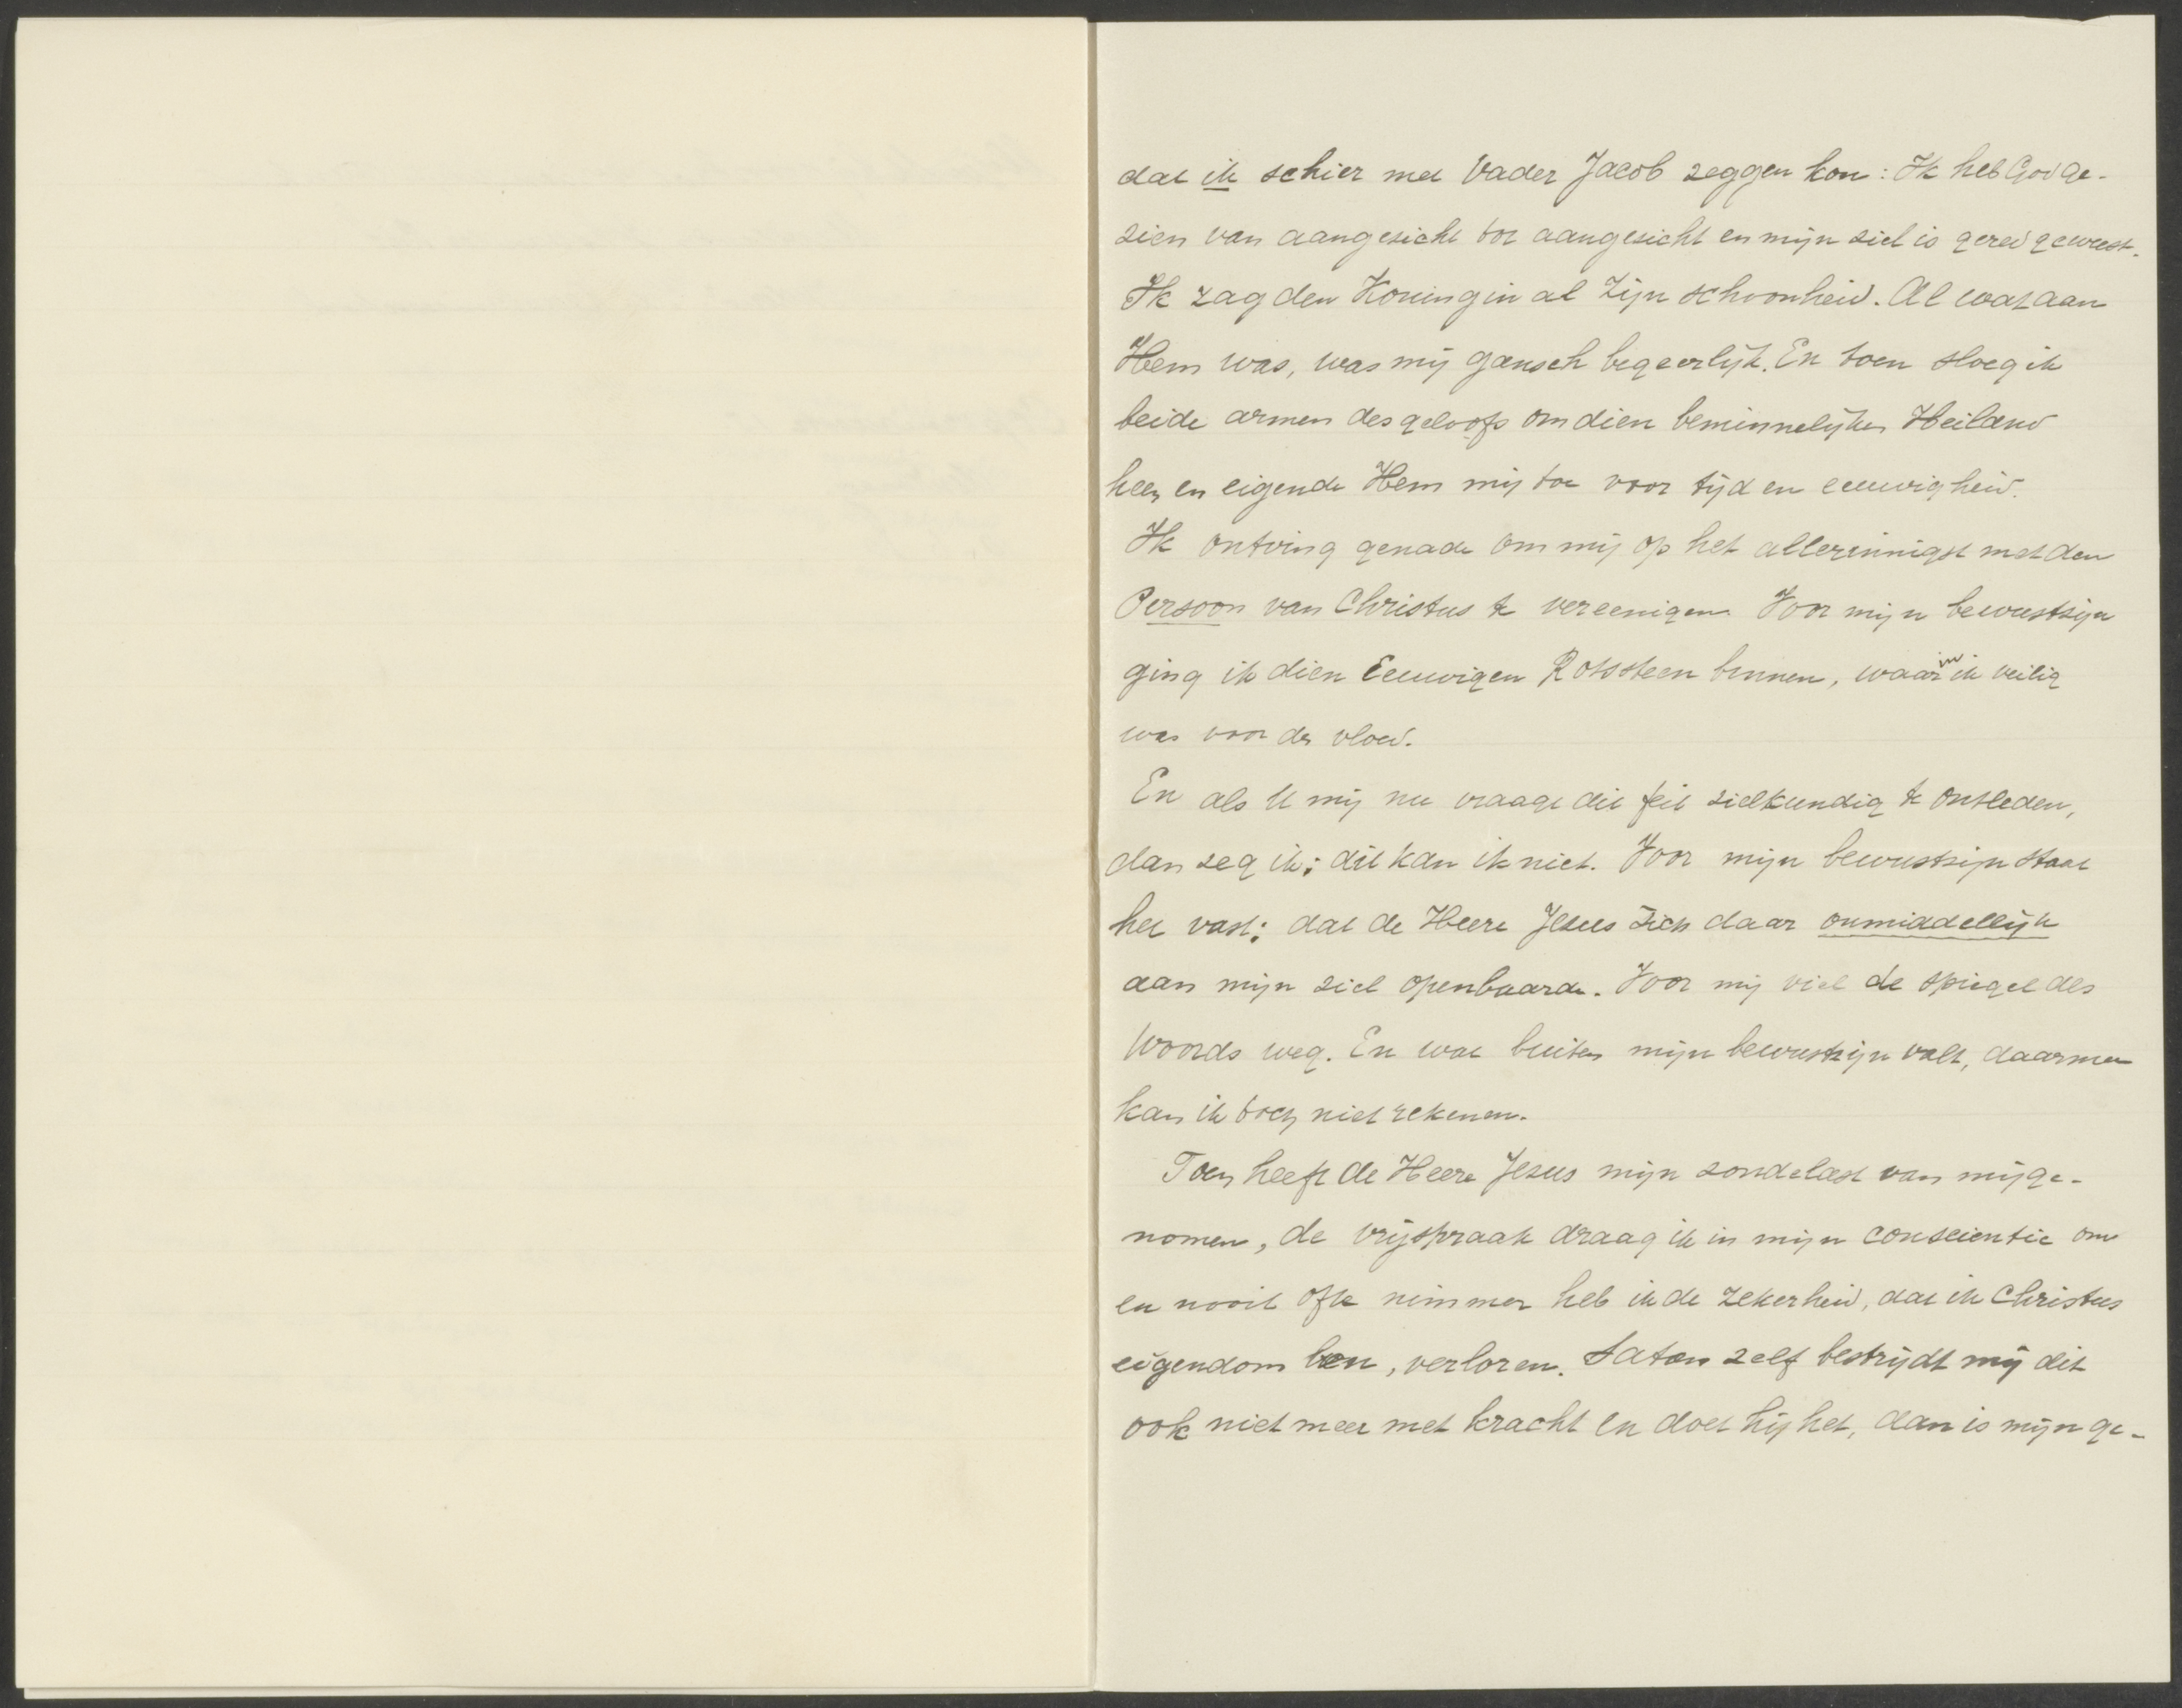 dat ik schier met Vader Jacob zeggen kon: Ik heb God ge-
zien van aangezicht tot aangezicht en mijn ziel is gered geweest.
Ik zag den Koning in al Zijn schoonheid. Al wat aan
Hem was, was mij gansch begeerlijk. En toen sloeg ik
beide armen des geloofs om dien beminnelijken Heiland
heen en eigende Hem mij toe voor tijd en eeuwigheid.
Ik ontving genade om mij op het allerinnigst met den
Persoon van Christus te vereenigen. Voor mijn bewustzijn
ging ik dien Eeuwigen Rotssteen binnen, waarin ik veilig
was voor den vloed.
En als U mij nu vraagt dit feit zielkundig te ontleden,
dan zeg ik: dit kan ik niet. Voor mijn bewustzijn staat
het vast: dat de Heere Jezus Zich daar onmiddellijk
aan mijn ziel openbaarde. Voor mij viel de spiegel des
Woords weg. En wat buiten mijn bewustzijn valt, daarmee
kan ik toch niet rekenen.
Toen heeft de Heere Jezus mijn zondelast van mij ge-
nomen, de vrijspraak draag ik in mijn conscientie om
en nooit ofte nimmer heb ik de zekerheid, dat ik Christus
eigendom ben, verloren. Satan zelf bestrijdt mij dit
ook niet meer met kracht en doet hij het, dan is mijn ge-